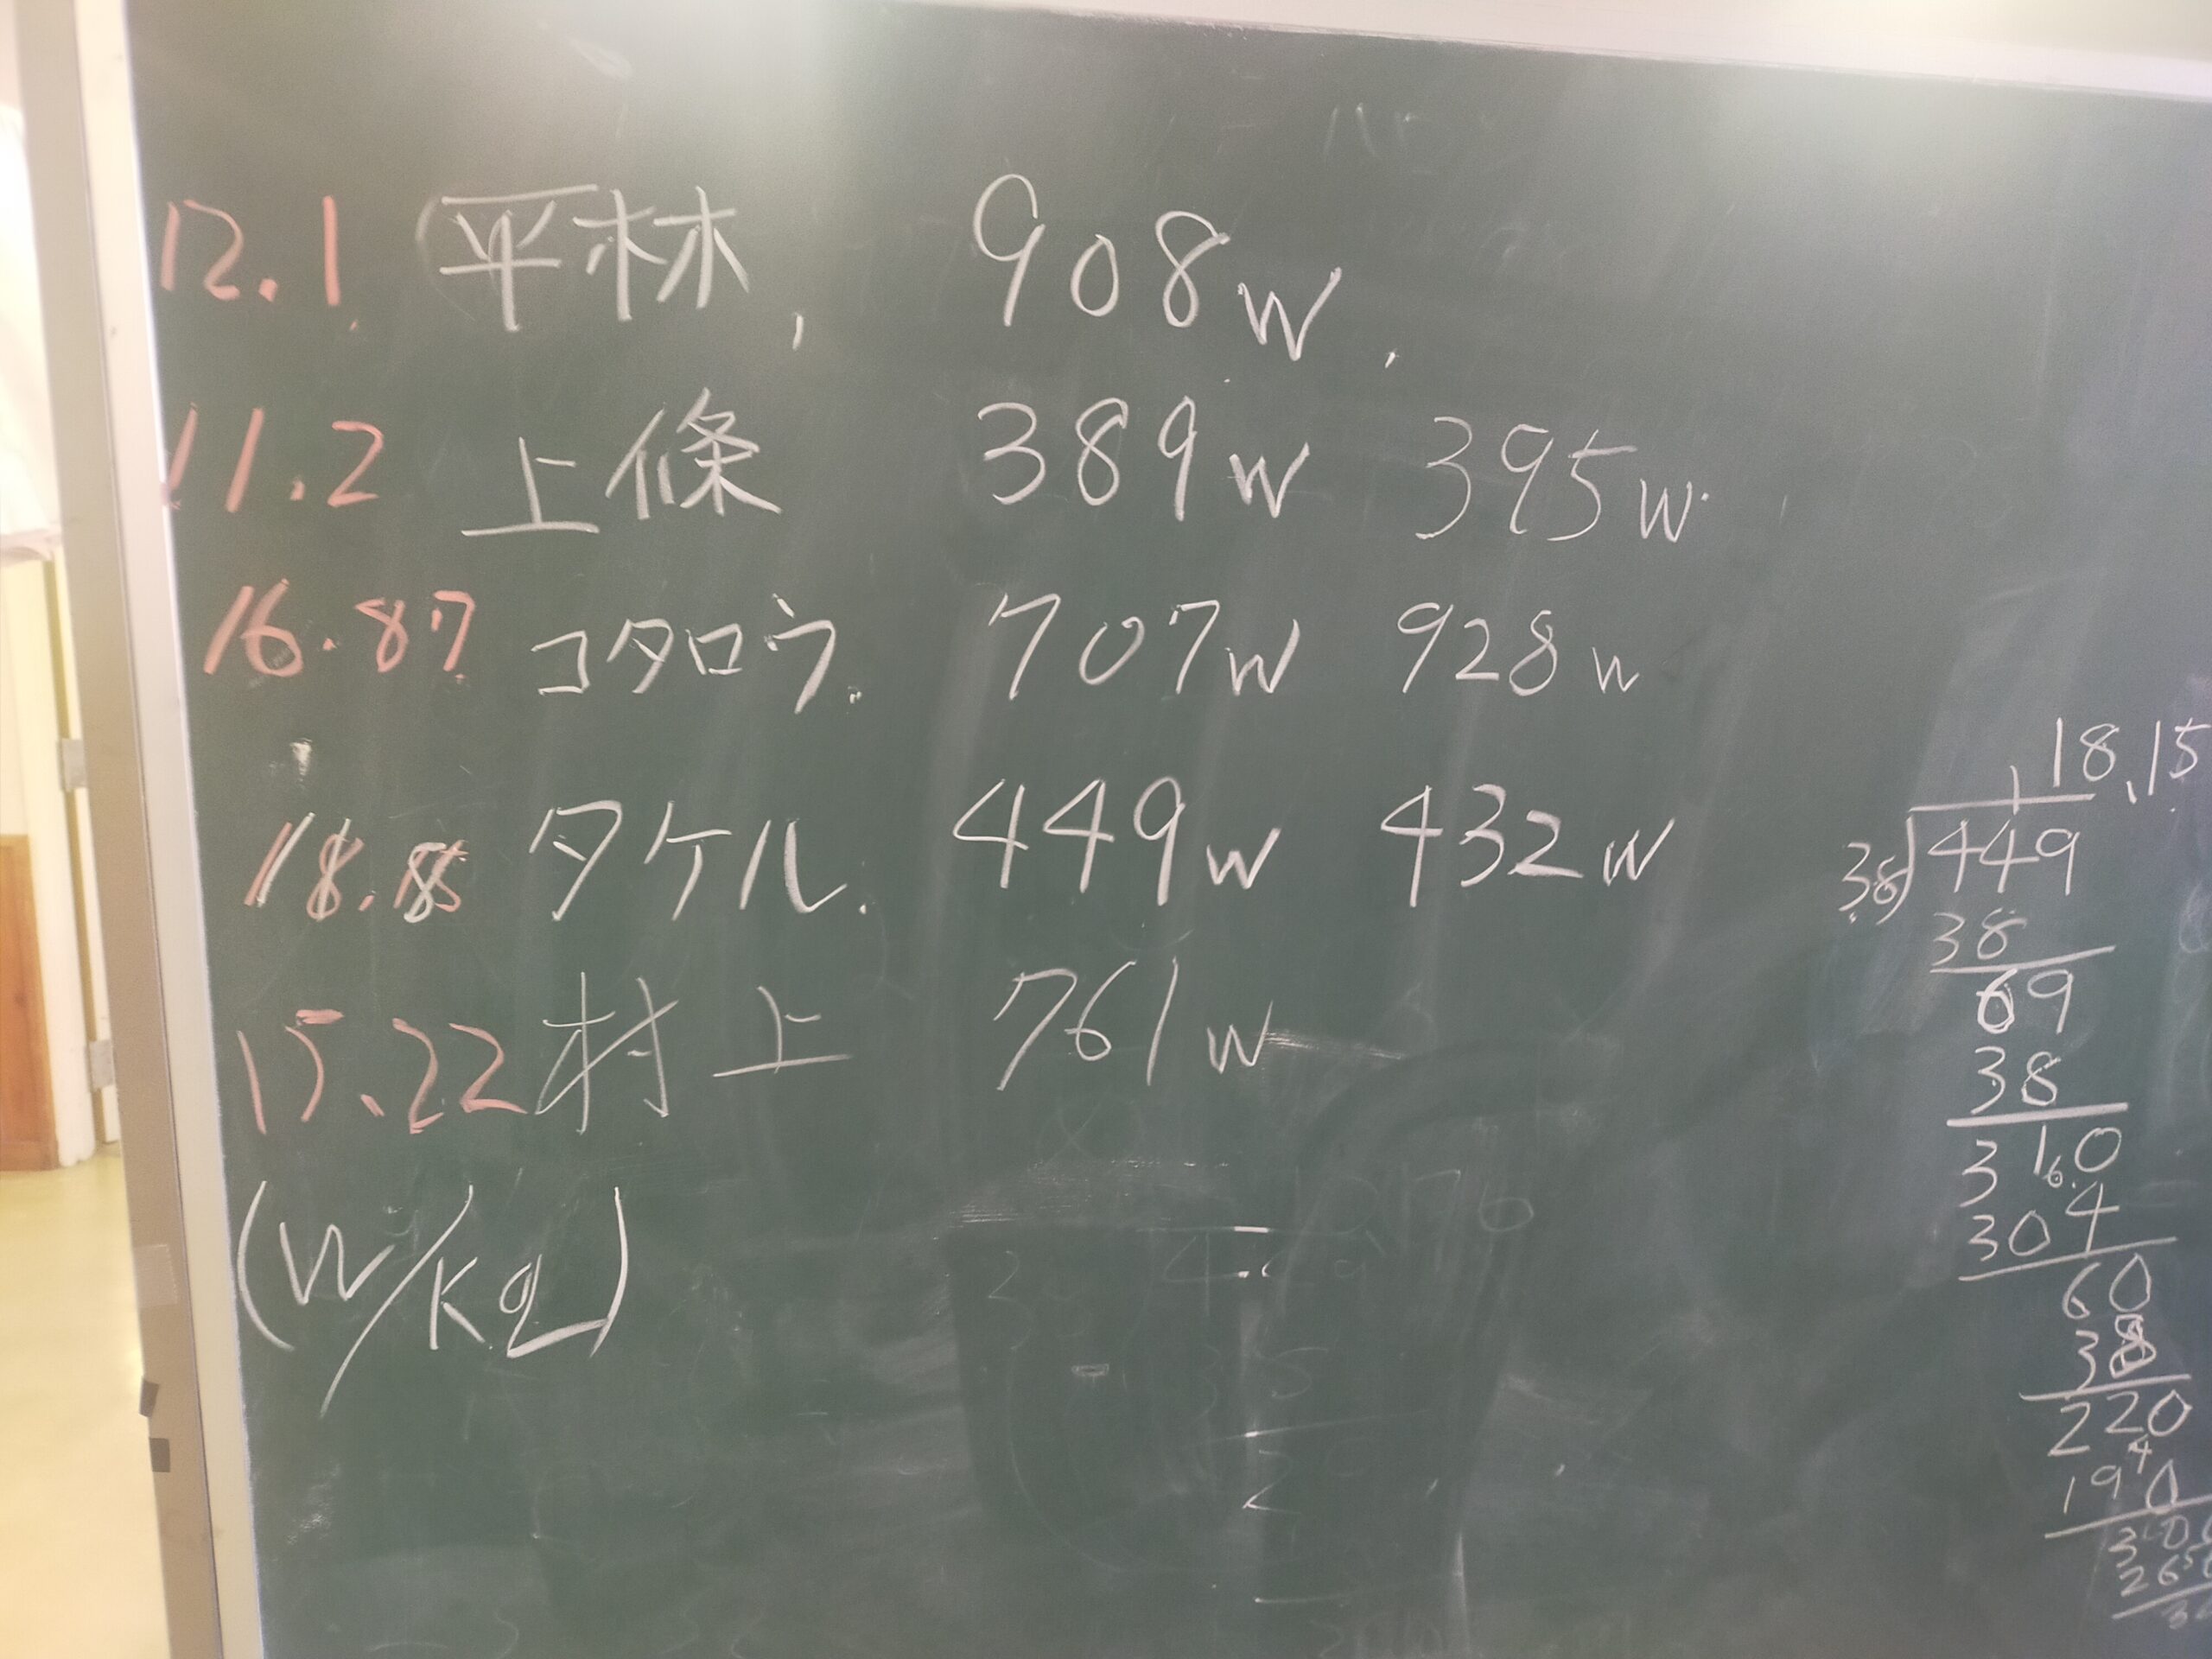 12.1 平林, 908w.
11.2 上條 389w 395w.
16.87 コタロウ. 707w 928w
タケル. 449w 432w
15.22 村上 761w
(W/Kg)
18.15
38)449
38
69
38
310
304
60
38
220
190